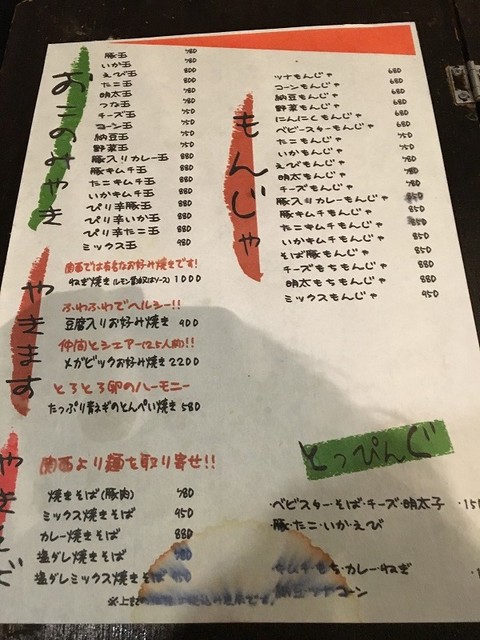 おこのみやき
豚玉 780
いか玉 780
えび玉 800
たこ玉 800
明太玉 780
つな玉 780
チーズ玉 750
コーン玉 750
納豆玉 750
野菜玉 750
豚入りカレー玉 880
豚キムチ玉 880
たこキムチ玉 880
いかキムチ玉 880
ぴり辛豚玉 880
ぴり辛いか玉 880
ぴり辛たこ玉 880
ミックス玉 980
やきます
関西では有名なお好み焼きです!
ねぎ焼き(レモン醤油又はソース) 1000
ふわふわでヘルシー!!
豆腐入りお好み焼き 900
仲間とシェアー(2.5人前)!!
メガビックお好み焼き 2200
とろとろ卵のハーモニー
たっぷり青ネギのとんぺい焼き 580
関西より麺を取り寄せ!!
焼きそば(豚肉) 780
ミックス焼きそば 950
カレー焼きそば 880
塩ダレ焼きそば
塩ダレミックス焼きそば
もんじゃ
ツナもんじゃ 680
コーンもんじゃ 680
納豆もんじゃ 680
野菜もんじゃ 680
にんにくもんじゃ 680
ベビースターもんじゃ 680
たこもんじゃ 750
いかもんじゃ 750
えびもんじゃ 780
明太もんじゃ 780
チーズもんじゃ 780
豚入りカレーもんじゃ 850
豚キムチもんじゃ 850
たこキムチもんじゃ 850
いかキムチもんじゃ 850
そば豚もんじゃ 850
チーズもちもんじゃ 880
明太もちもんじゃ 880
ミックスもんじゃ 950
とっぴんぐ
・ベビスター・そば・チーズ・明太子
・豚・たこ・いか・えび
・キムチ・もち・カレー・ねぎ
コーン